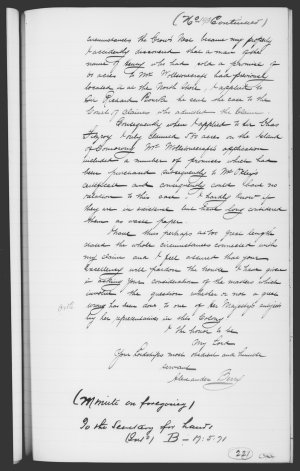 (No 1/98 Continued)
circumstances the Crows Nest became my property
I accidently discovered that a man of the
name of had sold a promise of
acres to Mr Wollstonecraft had previously
located it at the North Shore, I applied to
Sir Richard Bourke he sent the case to the
Court of Claims who admitted the Claim.
Consequently when I applied to Sir Chas
Fitzroy I only claimed 500 acres on the Island
of Comorong Mr Wollstonecraft's application
included a number of promises which had
been purchased subsequently to Mr
certificate and consequently could have no
relation to this case; I hardly know if
they are in existence but have long considered
them as waste paper.
I have thus perhaps at too great length
stated the whole circumstances connected with
my claim and I feel assured that your
Excellency will pardon the trouble I have given
in asking your consideration of the matter which
involves the question whether or not a great
wrong has been done to one of Her Majesty's subjects
by her representatives in this Colony
I the honor to be
My Lord
Your Lordships most obedient and humble
servant
Alexander Berry
(Minute on foregoing)
To the Secretary for Lands
B – 17.5.71
(221)